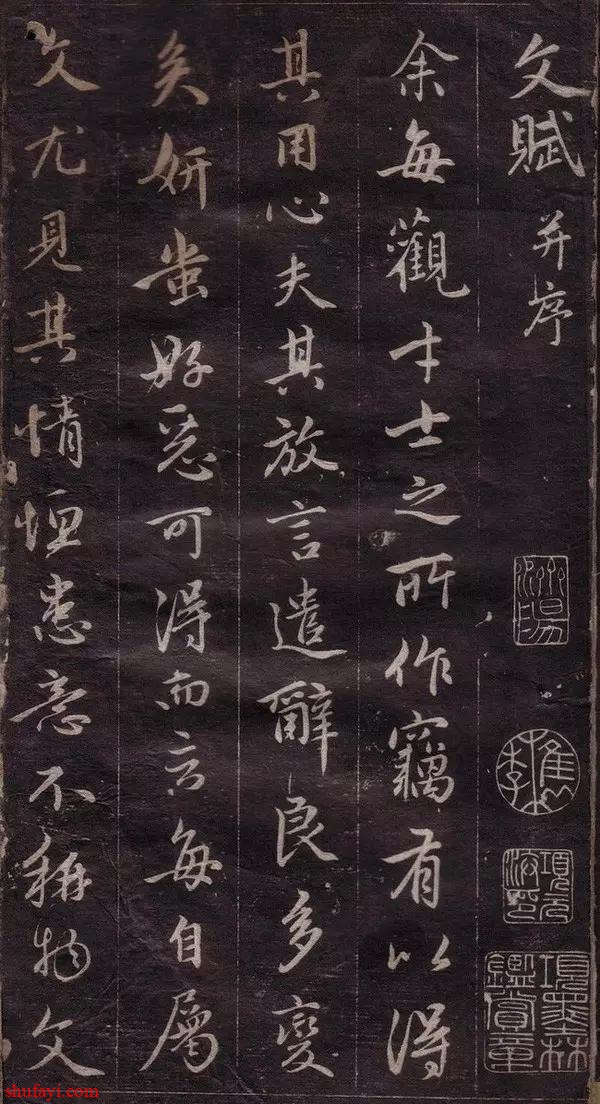 文賦 并序
余每觀才士之所作竊有以得
其用心夫其放言遣辭良多變
矣妍蚩好惡可得而言每自屬
文尤見其情恒患意不稱物文
檇李
項元汴印
項墨林鑑賞章
shufayi.com